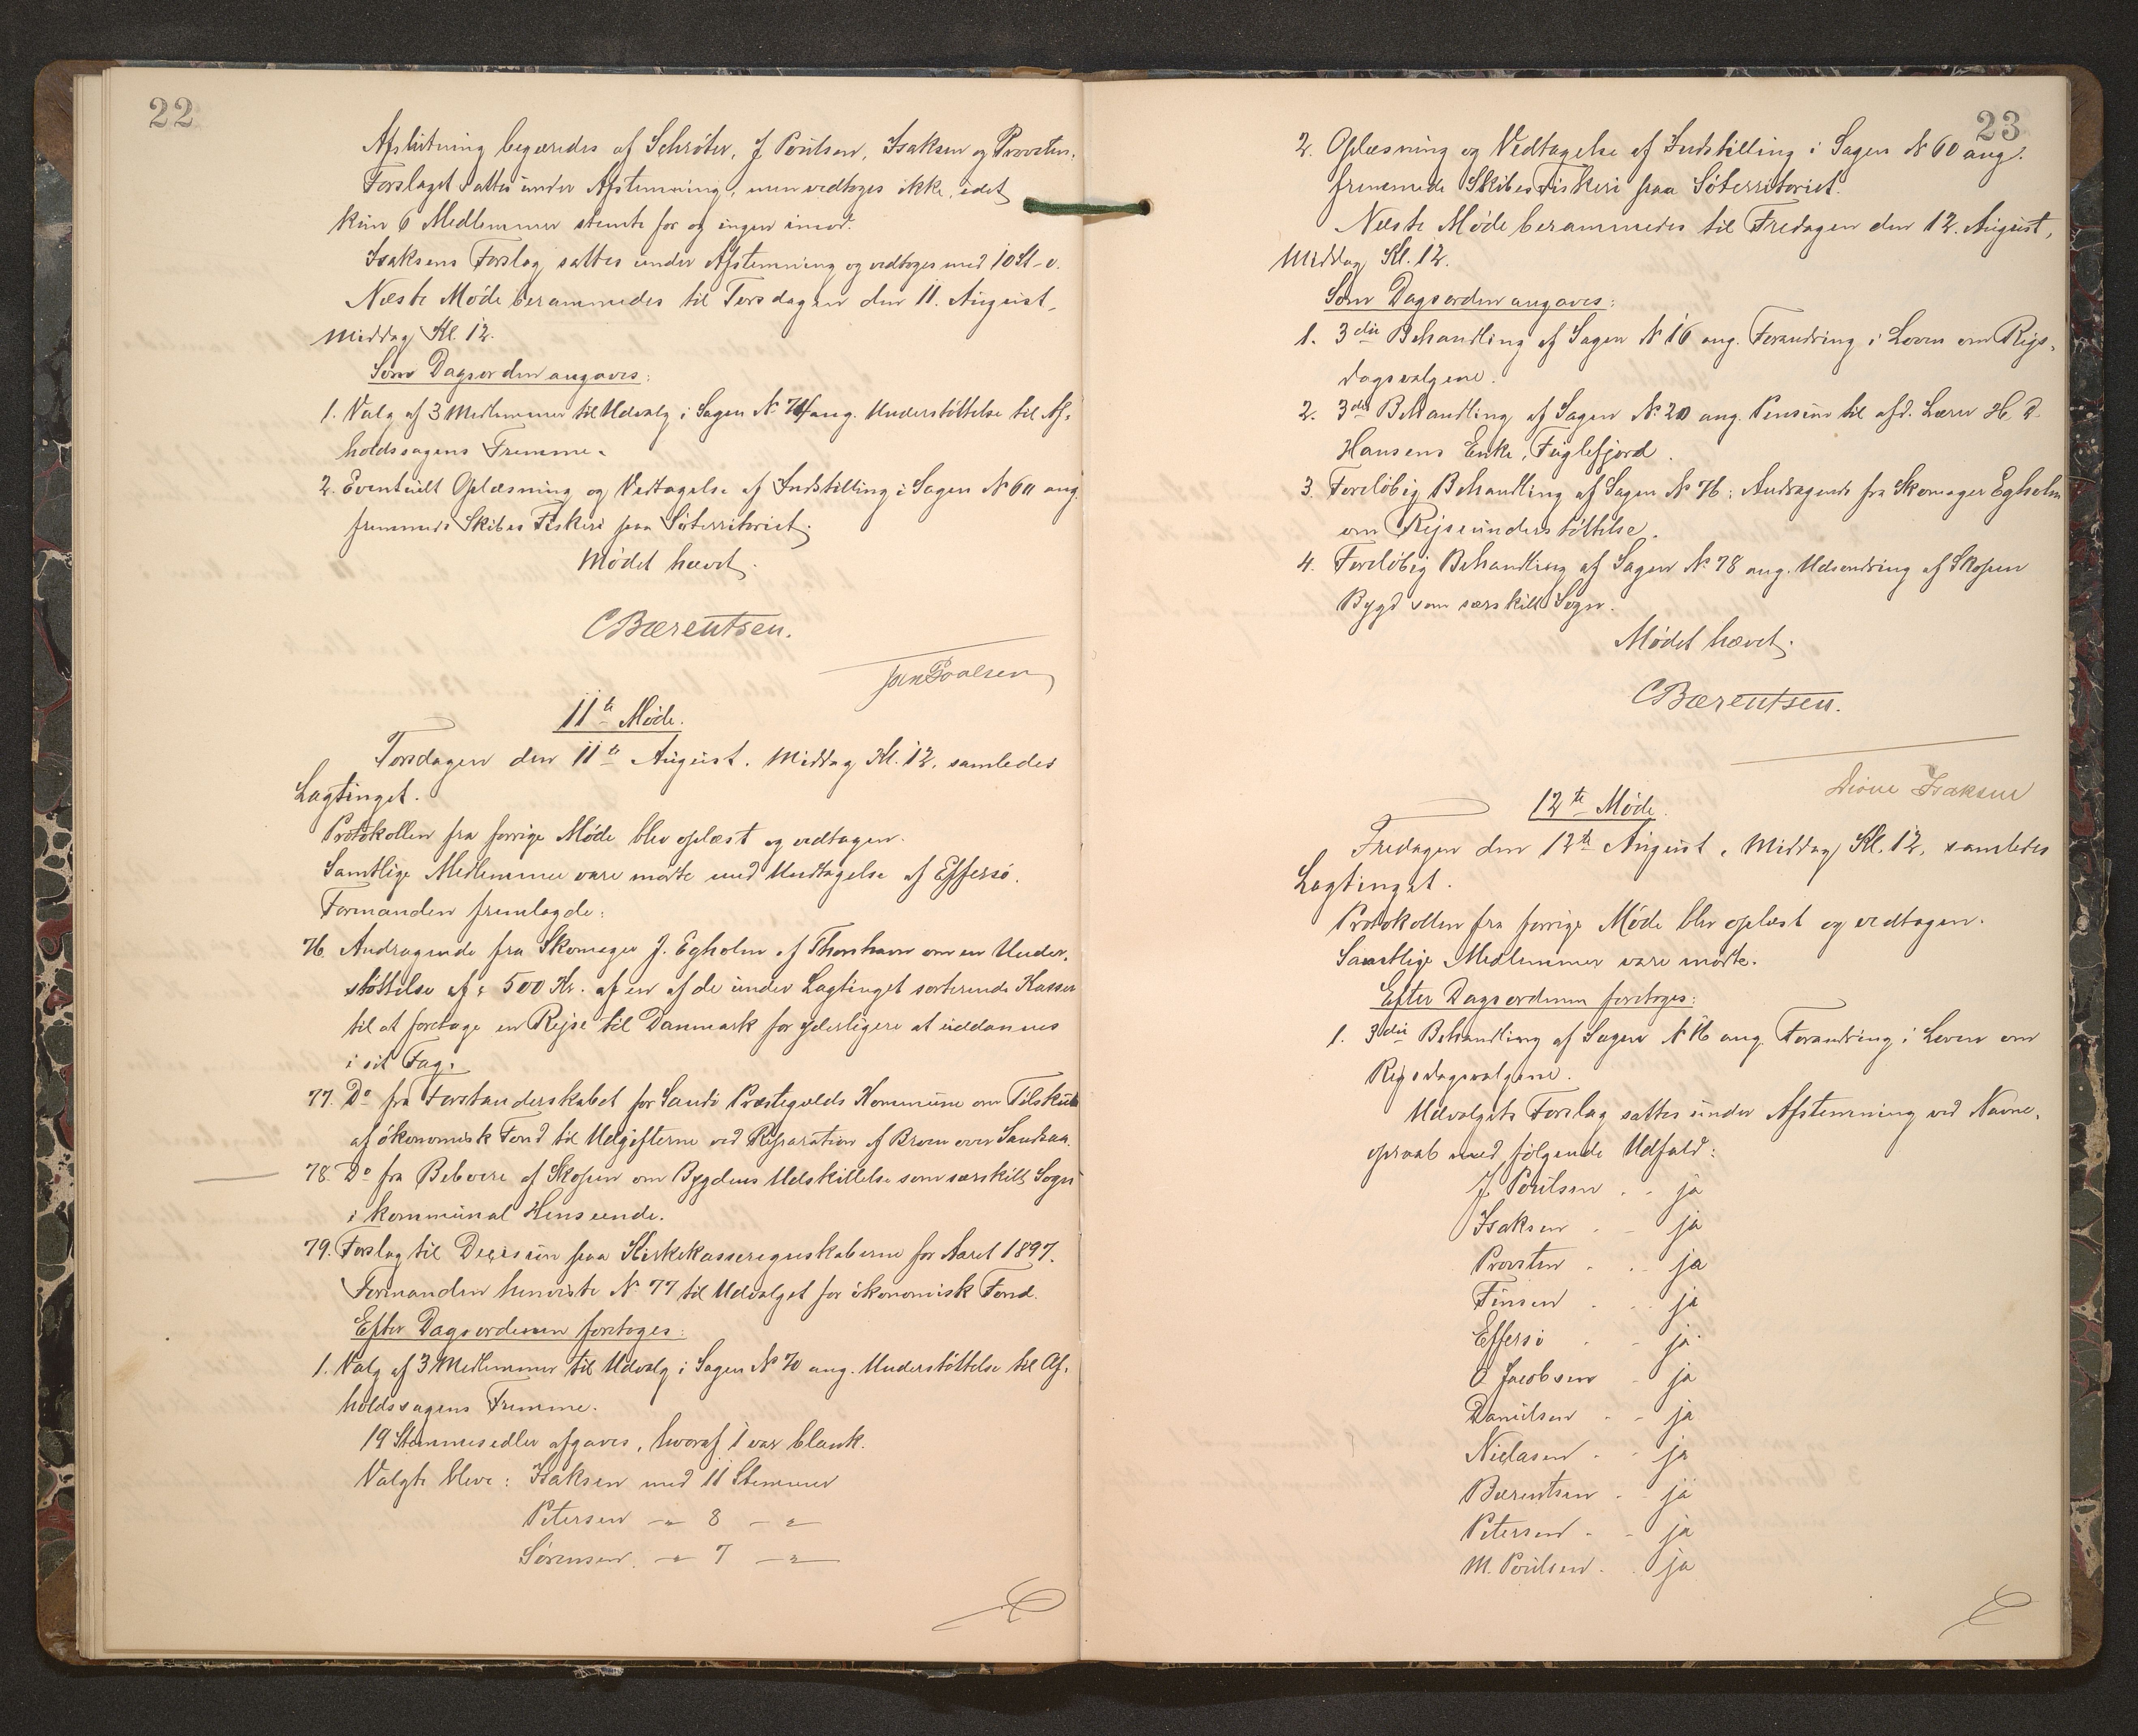 22
Afslutning begæredes af Schrøter, J. Poulsen, Isaksen og Provsten.
Forslaget sattes under Afstemning, men vedtoges ikke, idet
kun 6 Medlemmer stemte for og ingen imod.
Isaksens Forslag sattes under Afstemning og vedtoges med 10 St - 0.
Næste Møde berammedes til Torsdagen den 11. August,
Middag Kl. 12.
Som Dagsorden angaves:
1. Valg af 3 Medlemmer til Udvalg i Sagen N. 74 ang. Understøttelse til Af-
holdssagens Fremme.
2. Eventuelt Oplæsning og Vedtagelse af Indstilling i Sagen N. 60 ang.
fremmede Skibes Fiskeri paa Søterritoriet.
Mødet hævet.
C Bærentsen.
Joen Poulsen
11te Møde.
Torsdagen den 11te August. Middag Kl. 12, samledes
Lagtinget.
Protokollen fra forrige Møde blev oplæst og vedtagen.
Samtlige Medlemmer vare mødte med Undtagelse af Effersø.
Formanden fremlagde:
76. Andragende fra Skomager J. Egholm af Thorshavn om en Under-
støttelse af 500 Kr. af en af de under Lagtinget sorterende Kasser
til at foretage en Rejse til Danmark for yderligere at uddannes
i sit Fag.
77. Do fra Forstanderskabet for Sandø Præstegælds Kommune om Tilskud
af økonomisk Fond til Udgifterne ved Reparation af Broen over Sandsaa.
78. Do fra Beboere af Skopen om Bygdens Udskillelse som særskilt Sogn
i kommunal Henseende.
79. Forslag til Decision paa Kirkekasseregnskaberne for Aaret 1897.
Formanden henviste N. 77 til Udvalget for økonomisk Fond.
Efter Dagsordenen foretoges:
1. Valg af 3 Medlemmer til Udvalg i Sagen N. 70 ang. Understøttelse til Af-
holdssagens Fremme.
19 Stemmesedler afgaves, hvoraf 1 var blank.
Valgte bleve: Isaksen med 11 Stemmer
Petersen - " - 8 - " -
Sørensen - " - 7 - " -
23
2. Oplæsning og Vedtagelse af Indstilling i Sagen N. 60 ang.
fremmede Skibes Fiskeri paa Søterritoriet.
Næste Møde berammedes til Fredagen den 12. August,
Middag Kl. 12.
Som Dagsorden angaves:
1. 3die Behandling af Sagen N. 16 ang. Forandring i Loven om Rigs-
dagsvalgene.
2. 3die Behandling af Sagen N. 20 ang. Pension til afd. Lærer H. P.
Hansens Enke, Fuglefjord.
3. Foreløbig Behandling af Sagen N. 76: Andragende fra Skomager Egholm
om Rejseunderstøttelse.
4. Foreløbig Behandling af Sagen N. 78 ang. Udsondring af Skopen
Bygd som særskilt Sogn.
Mødet hævet.
C Bærentsen.
Dion Isaksen
12te Møde.
Fredagen den 12te August, Middag Kl. 12, samledes
Lagtinget.
Protokollen fra forrige Møde blev oplæst og vedtagen.
Samtlige Medlemmer vare mødte.
Efter Dagsordenen foretoges:
1. 3die Behandling af Sagen N. 16 ang. Forandring i Loven om
Rigsdagsvalgene.
Udvalgets Forslag sattes under Afstemning ved Navne-
opraab med følgende Udfald:
J. Poulsen . - ja
Isaksen . - ja
Provsten . . ja
Finsen . - ja
Effersø . - ja
O. Jacobsen - ja
Danielsen . - ja
Niclasen . - ja
Bærentsen . - ja
Petersen . - ja
M. Poulsen . . ja